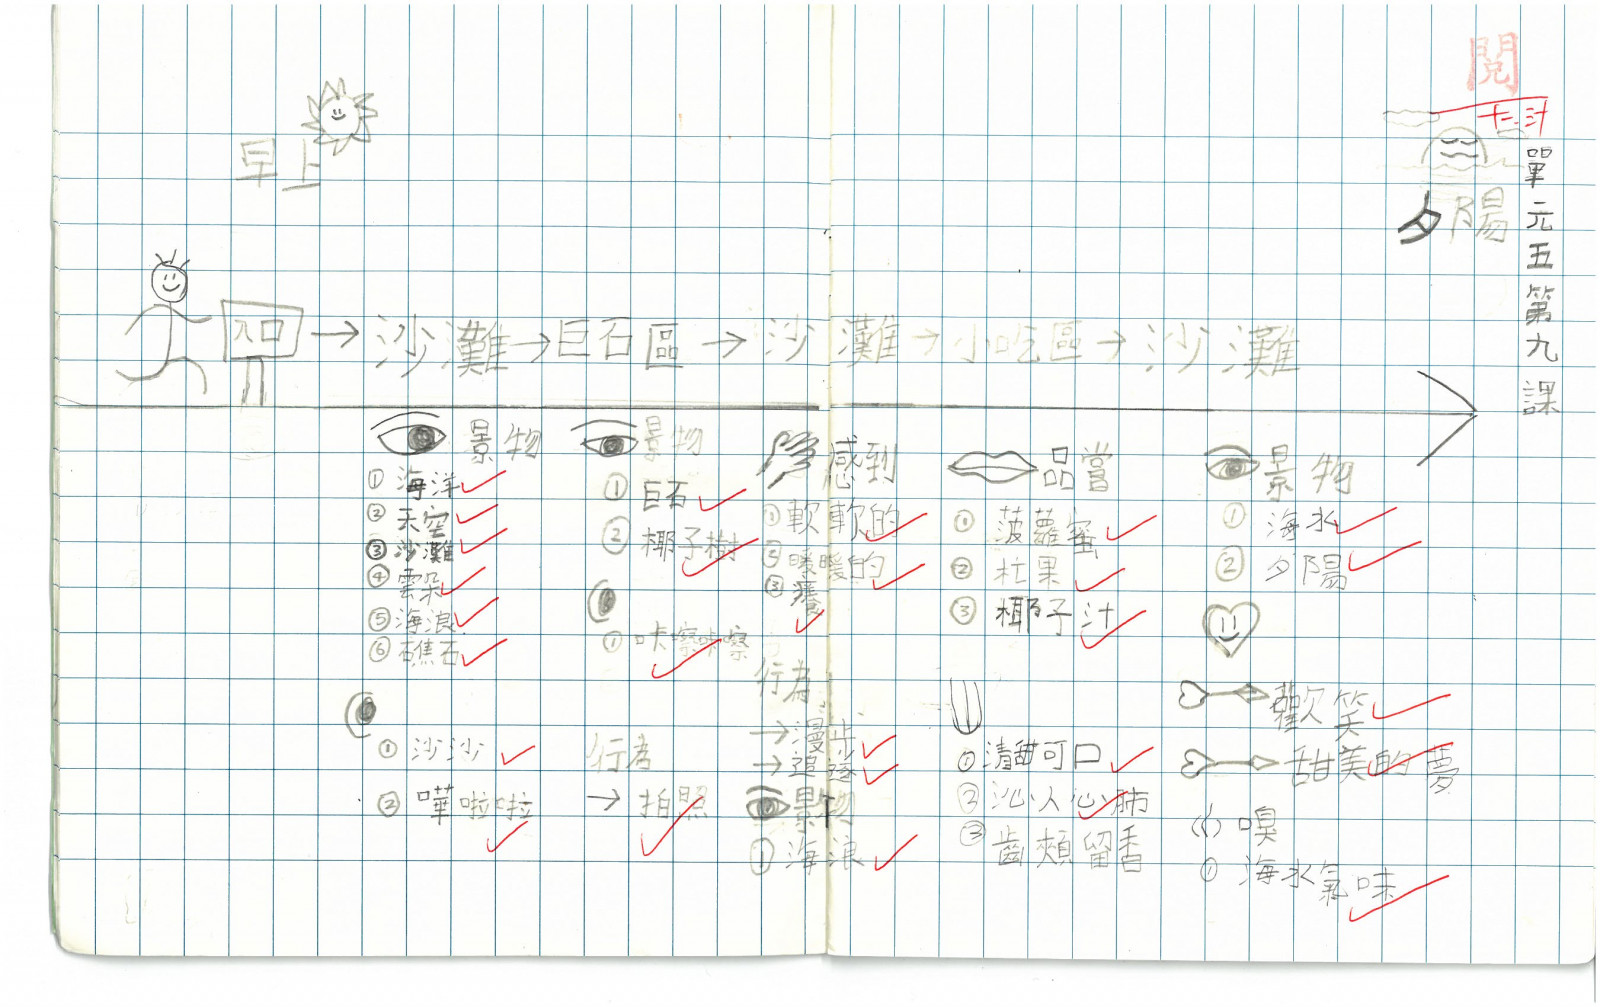 閱
十二汁
單元五第九課
早上
夕陽
入口→沙灘→巨石區→沙灘→小吃區→沙灘
景物
①海洋
②天空
③沙灘
④雲朵
⑤海浪
⑥礁石
①沙沙
②嘩啦啦
景物
①巨石
②椰子樹
①咔嚓咔嚓
行為
→拍照
感到
①軟軟的
②暖暖的
③癢
行為
→漫步
→追逐
景物
①海浪
品嘗
①菠蘿蜜
②杜果
③椰子汁
①清甜可口
②沁人心肺
③齒頰留香
景物
①海水
②夕陽
歡笑
甜美的夢
嗅
①海水氣味